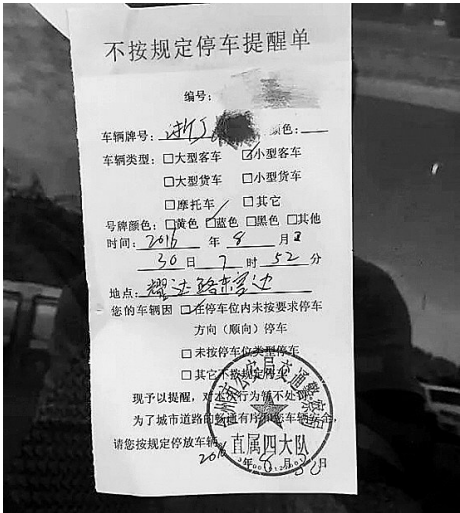 不按规定停车提醒单
编号:
车辆牌号: 浙J 颜色:
车辆类型: □大型客车 ☑小型客车
□大型货车 □小型货车
□摩托车 □其它
号牌颜色: □黄色 ☑蓝色 □黑色 □其他
时间: 2016 年 8 月
30 日 7 时 52 分
地点: 耀达路东
您的车辆因 ☑在停车位内未按要求停车
方向(顺向)停车
□未按停车位类型停车
□其它不按规定停车
现予以提醒,对本次行为暂不处罚。
为了城市道路的畅通有序和您车辆安全,
请您按规定停放车辆。
州市公安局交通警察
直属四大队
2016 年 8 月 30 日